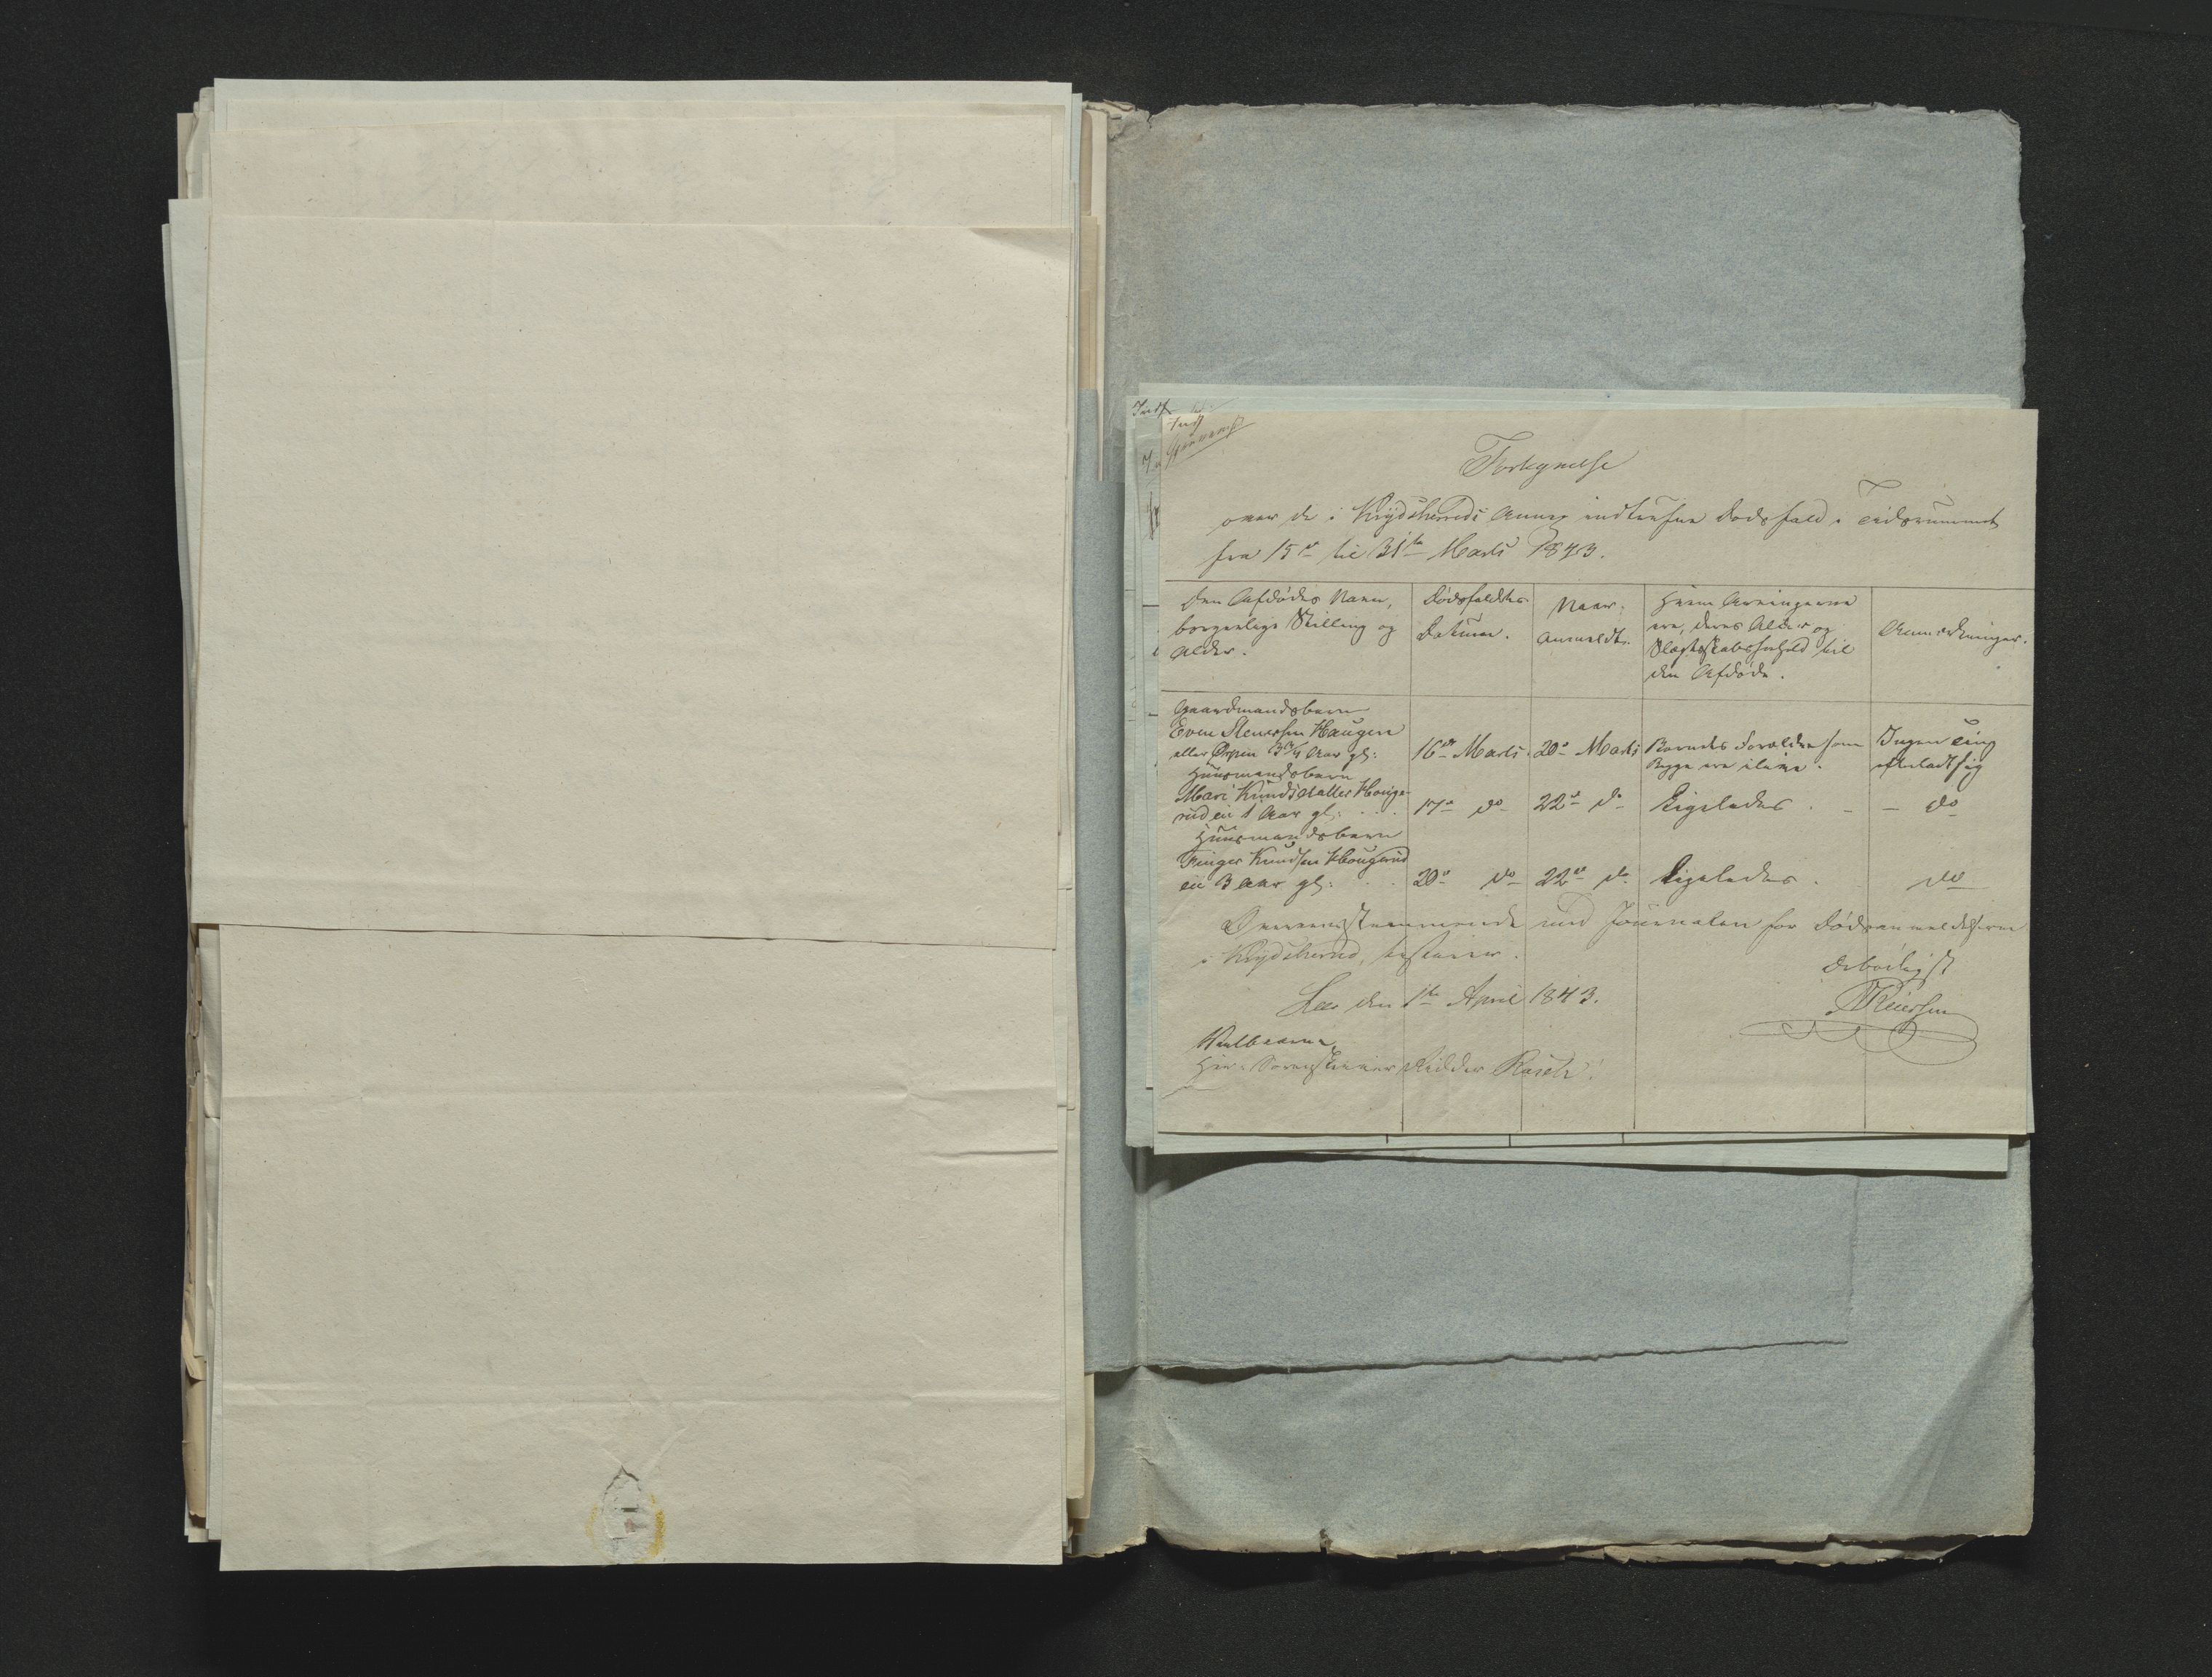 Indf
Fortegnelse
over de i Krydsherreds Annex indtrufne Dødsfald i Tidsrummet
fra 15de til 31te Marts 1843.
Den Afdødes Navn,
borgerlige Stilling og
Alder.
Dødsfaldets
Datum.
Naar
anmeldt.
Hvem Arvingerne
ere, deres Alder og
Slægtskabsforhold til
den Afdøde.
Anmærkninger.
Gaardmandsbarn
Even Steversen Haugen
eller Ørpen 3 3/4 Aar gl:
16de Marts
20de Marts
Barnets Forældre som
begge ere ilive.
Ingen Ting
efterladt sig
Huusmandsbarn
Mari Knudsdatter Houge-
rudei 1 Aar gl:
17de do
22de do
Ligeledes
do
Huusmandsbarn
Knudsen Hougerud
ei 3 Aar gl:
20de do
22de do
Ligeledes
do
Overeensstemmende med Journalen for Dødsanmeldelserne
i Krydsherred, testerer.
Lee den 1te April 1843.
Ærbødigst
Reiersen
Velbaarne
Herr Sorenskriver Ridder Rasch.